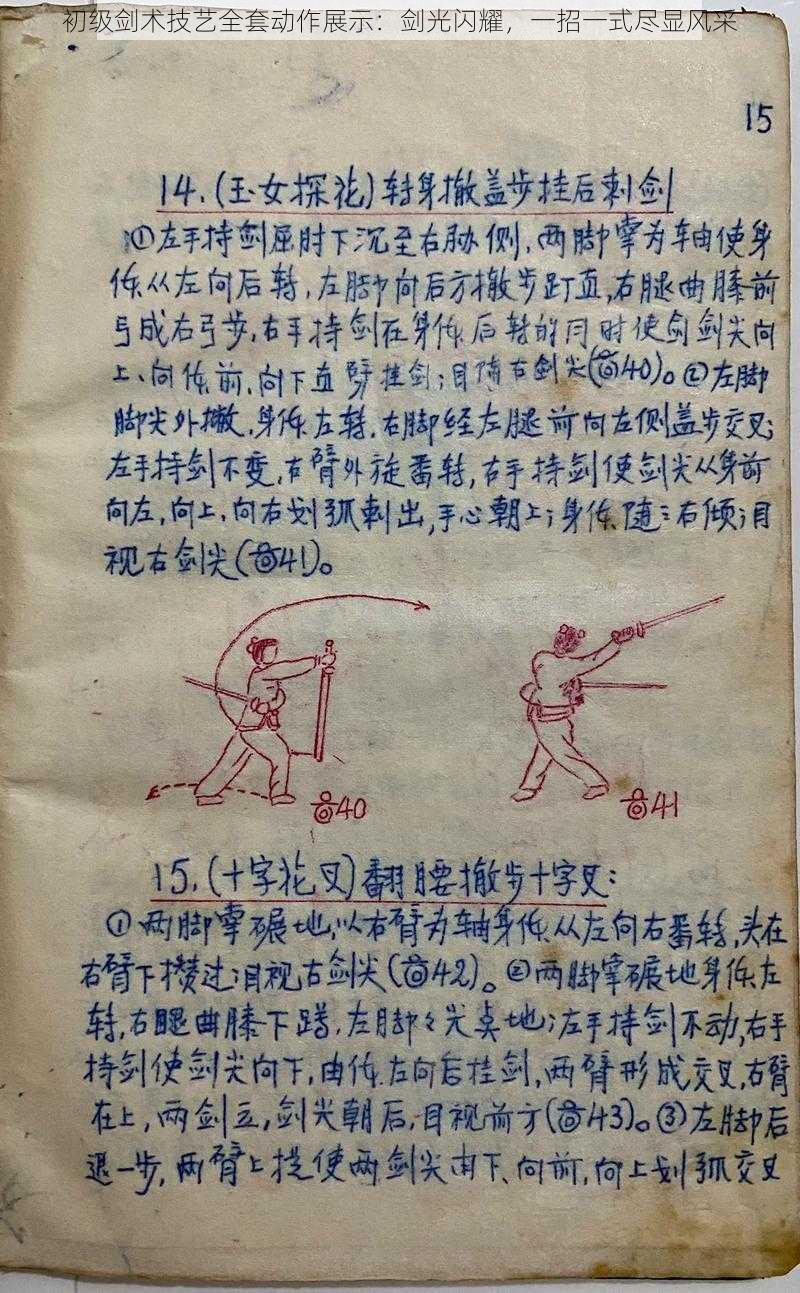 初级剑术技艺全套动作展示：剑光闪耀，一招一式尽显风采
15
14.(玉女探花)转身撤盖步挂后刺剑
①左手持剑屈肘下沉至右胁侧,两脚掌为车由使身
体从左向后转,左脚向后方撤步趴直,右腿曲膝前
弓成右弓步,右手持剑在身体后转的同时使剑剑尖向
上、向体前、向下直臂挂剑;目随右剑尖(图40)。②左脚
脚尖外撇,身体左转,右脚经左腿前向左侧盖步交叉;
左手持剑不变,右臂外旋番转,右手持剑使剑尖从身前
向左,向上,向右划弧刺出,手心朝上;身体随之右倾;目
视右剑尖(图41)。
图40
图41
15.(十字花叉)翻腰撤步十字叉:
①两脚掌碾地,以右臂为轴身体从左向右番转,头在
右臂下攒过;目视右剑尖(图42)。②两脚掌碾地身体左
转,右腿曲膝下蹲,左脚々尖点地;左手持剑不动,右手
持剑使剑尖向下,由体左向后挂剑,两臂形成交叉,右臂
在上,两剑立,剑尖朝后,目视前方(图43)。③左脚后
退一步,两臂上提使两剑尖由下、向前,向上划弧交叉